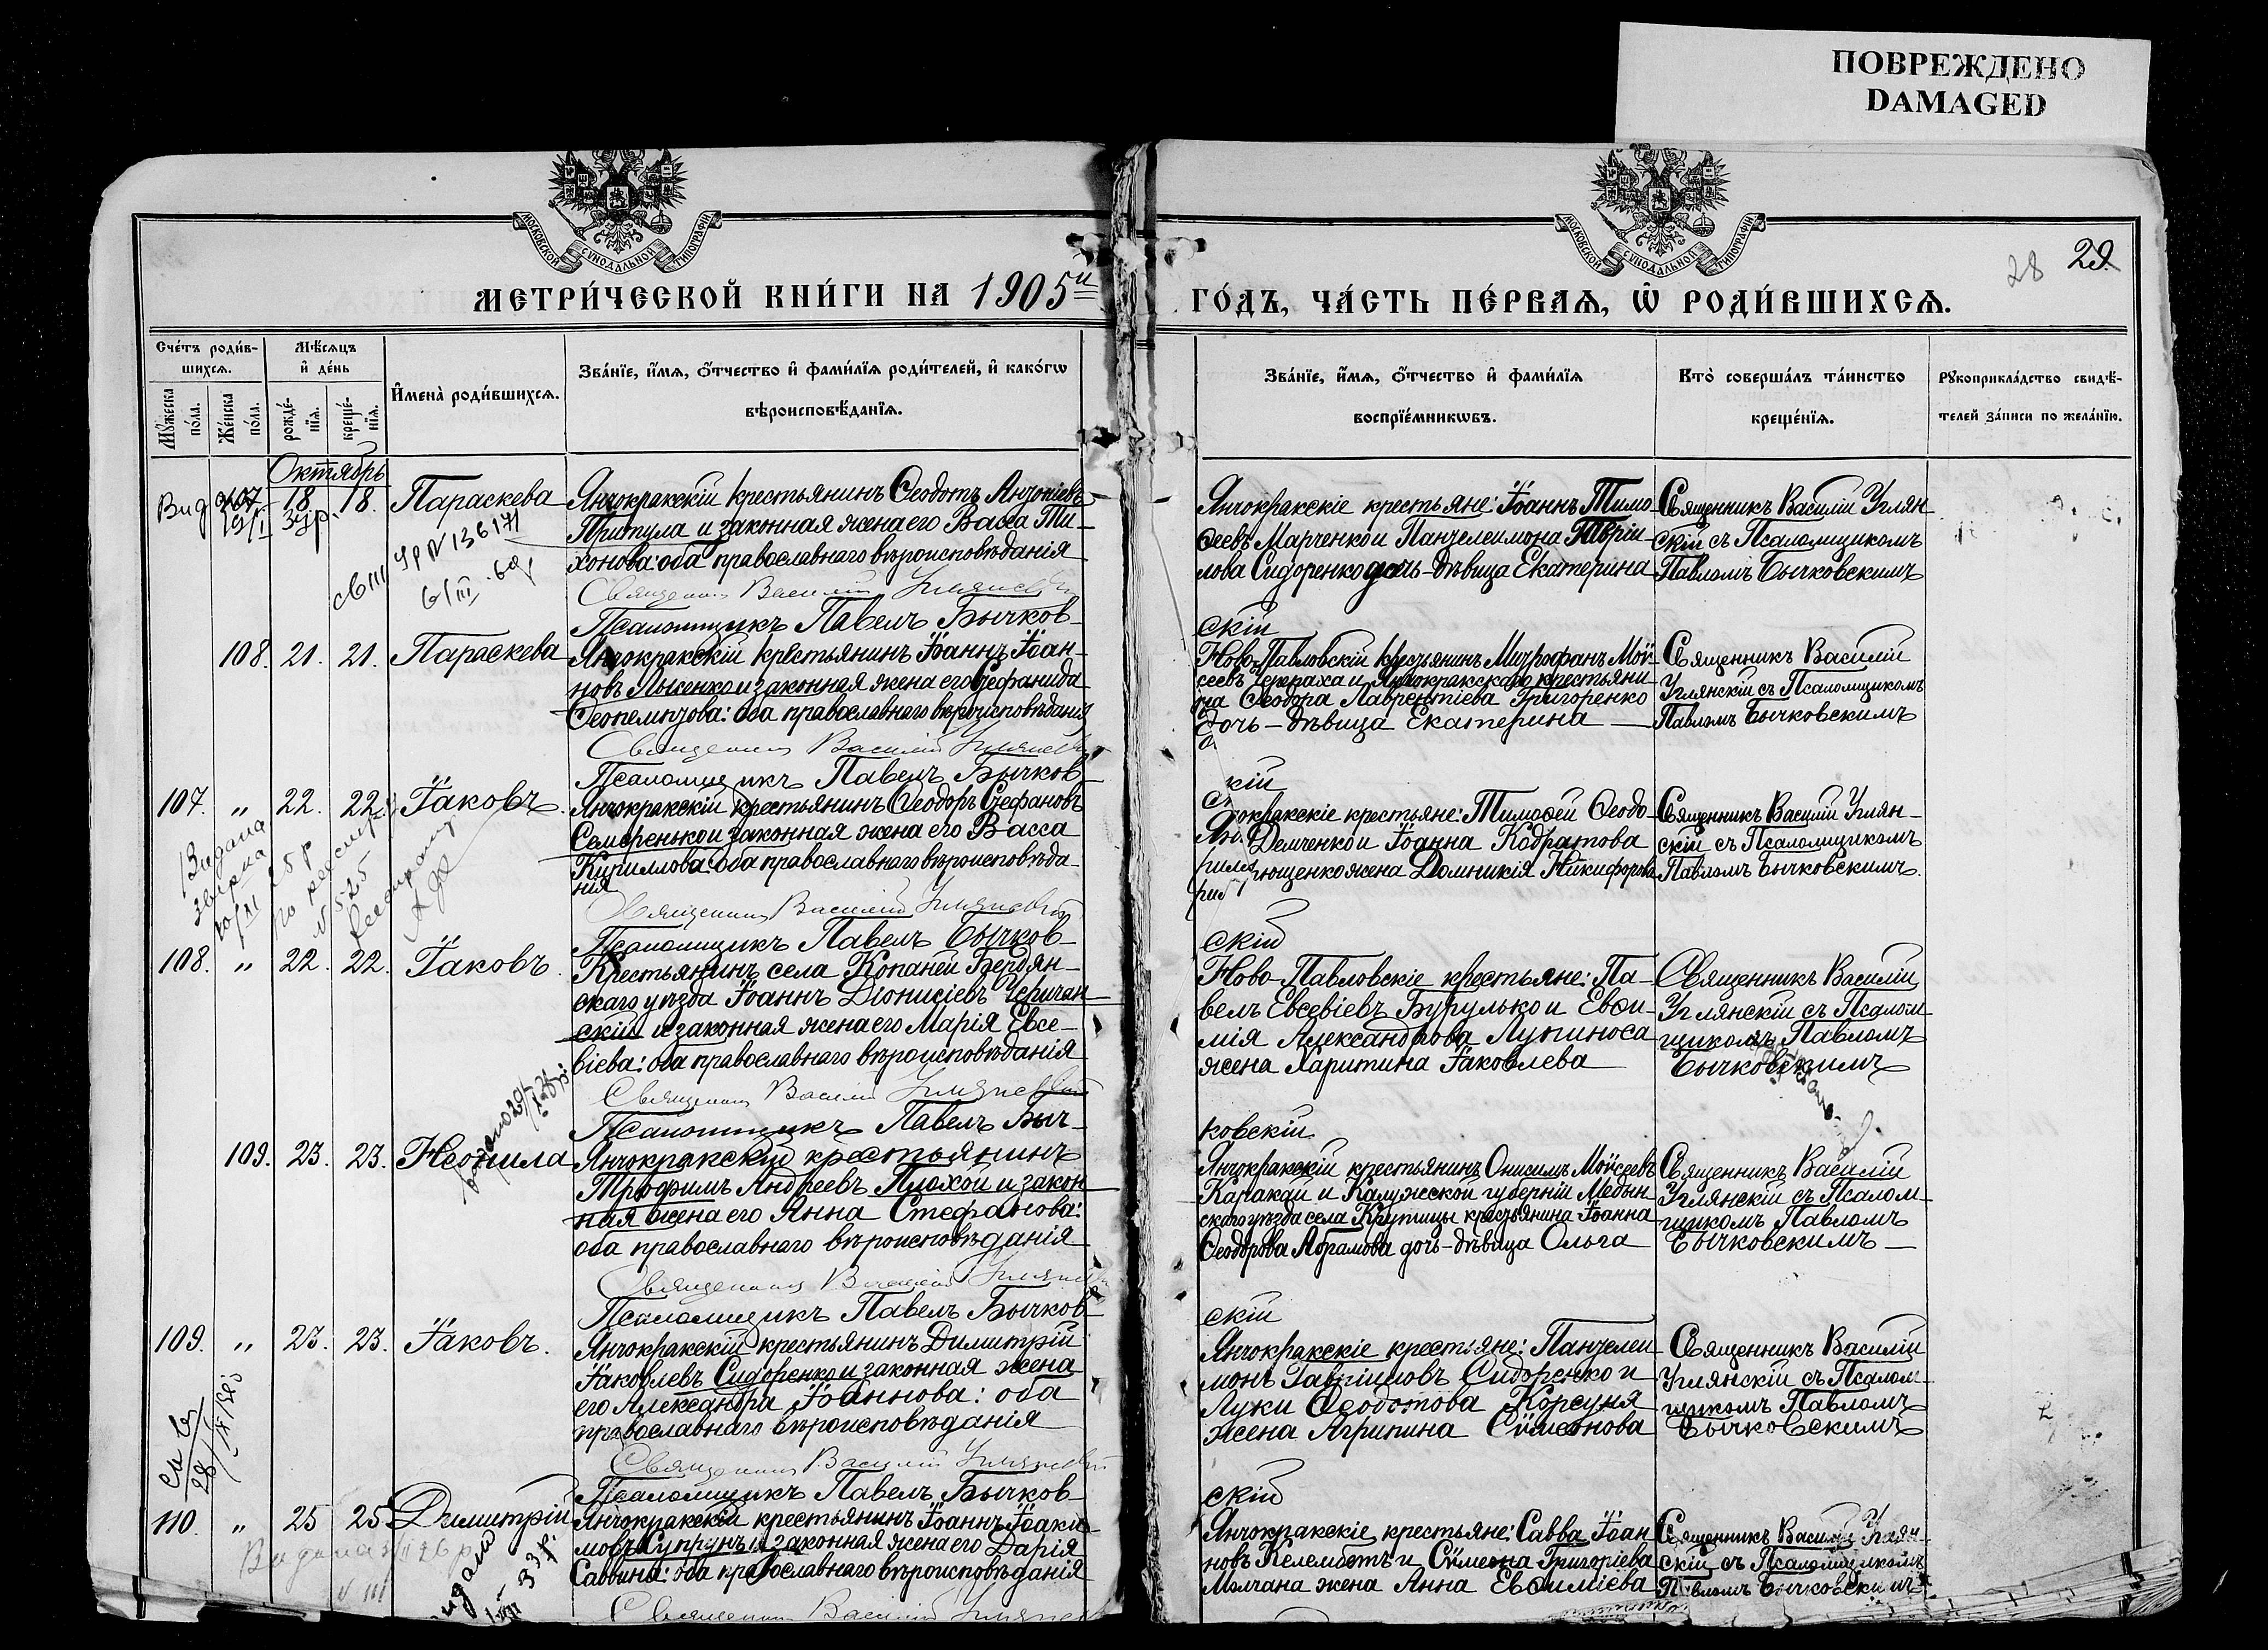 ПОВРЕЖДЕНО
DAMAGED
МОСКОВСКОЙ СѴНОДАЛЬНОЙ ТИПОГРАФІИ
МОСКОВСКОЙ СѴНОДАЛЬНОЙ ТИПОГРАФІИ
28 29.
МЕТРИ́ЧЕСКОЙ КНИ́ГИ НА 1905й
ГО́ДЪ, ЧА́СТЬ ПЕ́РВАѦ, Ѡ РОДИ́ВШИХСѦ.
Сче́тъ роди́в-
шихсѧ.
Мꙋ́жеска
по́ла.
Же́нска
по́ла.
Мѣ́сѧцъ
и҆ де́нь
рожде́-
нїѧ.
креще́-
нїѧ.
И҆мена̀ роди́вшихсѧ.
Зва́нїе, и҆́мѧ, ѻ҆́тчество и҆ фами́лїѧ роди́телей, и҆ како́гѡ
вѣроисповѣ́данїѧ.
Зва́нїе, и҆́мѧ, ѻ҆́тчество и҆ фами́лїѧ
воспрїе́мникѡвъ.
Кто̀ соверша́лъ та́инство
креще́нїѧ.
Рꙋкоприкла́дство свидѣ́-
телей за́писи по жела́нїю.
Октябрь
107 18. 18. Параскева
Янчокракскій крестьянинъ Ѳеодотъ Антоніевъ
Притула и законная жена его Васса Ти-
хонова: оба православнаго вѣроисповѣданія
Священникъ Василій Углянскій
Псаломщикъ Павелъ Бычков-
скій
Янчокракскіе крестьяне: Іоаннъ Тимо-
ѳеевъ Марченко и Пантелеимона Гаврии-
лова Сидоренко дочь-дѣвица Екатерина
Священникъ Василій Углян-
скій съ Псаломщикомъ
Павломъ Бычковскимъ
108. 21. 21. Параскева
Янчокракскій крестьянинъ Іоаннъ Іоан-
новъ Лысенко и законная жена его Стефанида
Ѳеопемптова: оба православнаго вѣроисповѣданія
Священникъ Василій Углянскій
Псаломщикъ Павелъ Бычков-
скій
Ново-Павловскій крестьянинъ Митрофанъ Мой-
сеевъ Черпаха и Янчокракскаго крестьяни-
на Ѳеодора Лаврентіева Григоренко
дочь-дѣвица Екатерина
Священникъ Василій
Углянскій съ Псаломщикомъ
Павломъ Бычковскимъ
107. " 22. 22. Іаковъ
Янчокракскій крестьянинъ Ѳеодоръ Стефановъ
Семеренько и законная жена его Васса
Кириллова: оба православнаго вѣроисповѣда-
нія
Священникъ Василій Углянскій
Псаломщикъ Павелъ Бычков-
скій
крестьяне: Тимоѳей Ѳеодо-
Демченко и Іоанна Кодратова
жена Домникія Никифорова
Священникъ Василій Углян-
скій съ Псаломщикомъ
Павломъ Бычковскимъ.
108. " 22. 22. Іаковъ.
Крестьянинъ села Копаней Бердян-
скаго уѣзда Іоаннъ Діонисіевъ Черичан-
скій и законная жена его Марія Евсе-
віева: оба православнаго вѣроисповѣданія
Священникъ Василій Углянскій
Псаломщикъ Павелъ Быч-
ковскій
Ново-Павловскіе крестьяне: Па-
велъ Евсевіевъ Бурулько и Евѳи-
мія Александрова Лупиноса
жена Харитина Іаковлева
Священникъ Василій
Углянскій съ Псалом-
щикомъ Павломъ
Бычковскимъ
109. 23. 23. Неонила
Янчокракскій крестьянинъ
Трофимъ Андреевъ Плохой и закон-
ная жена его Анна Стефанова:
оба православнаго вѣроисповѣданія
Священникъ Василій Углянскій
Псаломщикъ Павелъ Бычков-
скій
Янчокракскій крестьянинъ Онисимъ Мойсеевъ
Каракай и Калужской губерніи Медын-
скаго уѣзда села Крутицы крестьянина Іоанна
Ѳеодорова Абрамова дочь-дѣвица Ольга
Священникъ Василій
Углянскій съ Псалом-
щикомъ Павломъ
Бычковскимъ
109. " 23. 23. Іаковъ.
Янчокракскій крестьянинъ Димитрій
Іаковлевъ Сидоренко и законная жена
его Александра Іоаннова: оба
православнаго вѣроисповѣданія
Священникъ Василій Углянскій
Псаломщикъ Павелъ Бычков-
скій
Янчокракскіе крестьяне: Пантелеи-
монъ Гавріиловъ Сидоренко и
Луки Ѳеодотова Корсуня
жена Агрипина Сѵмеонова
Священникъ Василій
Углянскій съ Псалом-
щикомъ Павломъ
Бычковскимъ
110. " 25 25 Димитрій
Янчокракскій крестьянинъ Іоаннъ Іоаки-
мовъ Супрунъ и законная жена его Дарія
Саввина: оба православнаго вѣроисповѣданія
Священникъ Василій Углянскій
Янчокракскіе крестьяне: Савва Іоан-
новъ Келембетъ и Сѵмеона Григоріева
Молчана жена Анна Евѳиміева
Священникъ Василій Углян-
скій съ Псаломщикомъ
Павломъ Бычковскимъ